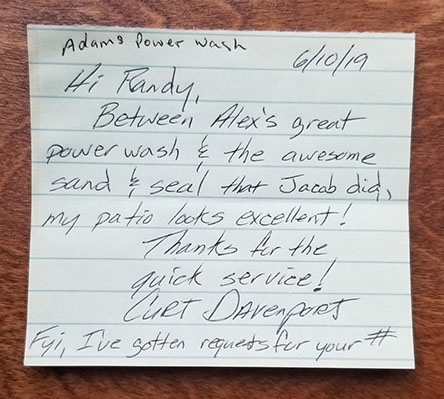 Adams Power Wash
6/10/19
Hi Randy,
Between Alex's great
power wash & the awesome
sand & seal that Jacob did,
my patio looks excellent!
Thanks for the
quick service!
Curt Davenport
Fyi, I've gotten requests for your #